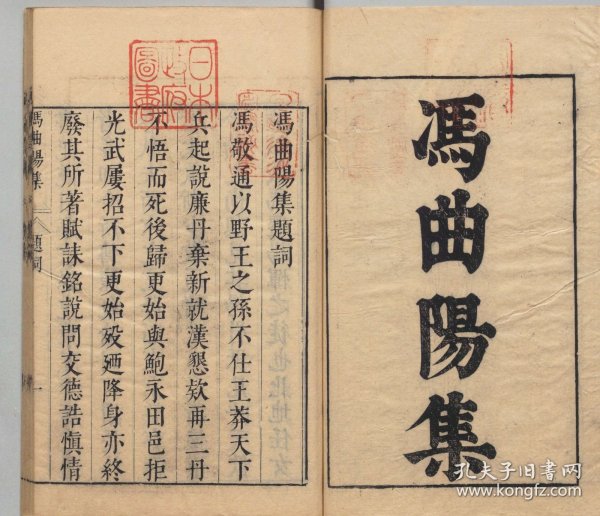 馮曲陽集
馮曲陽集題詞
馮敬通以野王之孫不仕王莽天下
兵起說廉丹棄新就漢懇欵再三丹
不悟而死後歸更始與鮑永田邑拒
光武屢招不下更始殁廼降身亦終
廢其所著賦誄銘說問交德誥慎情
馮曲陽集
題詞
一
日本
政府
圖書
孔夫子旧书网
www.kongfz.com